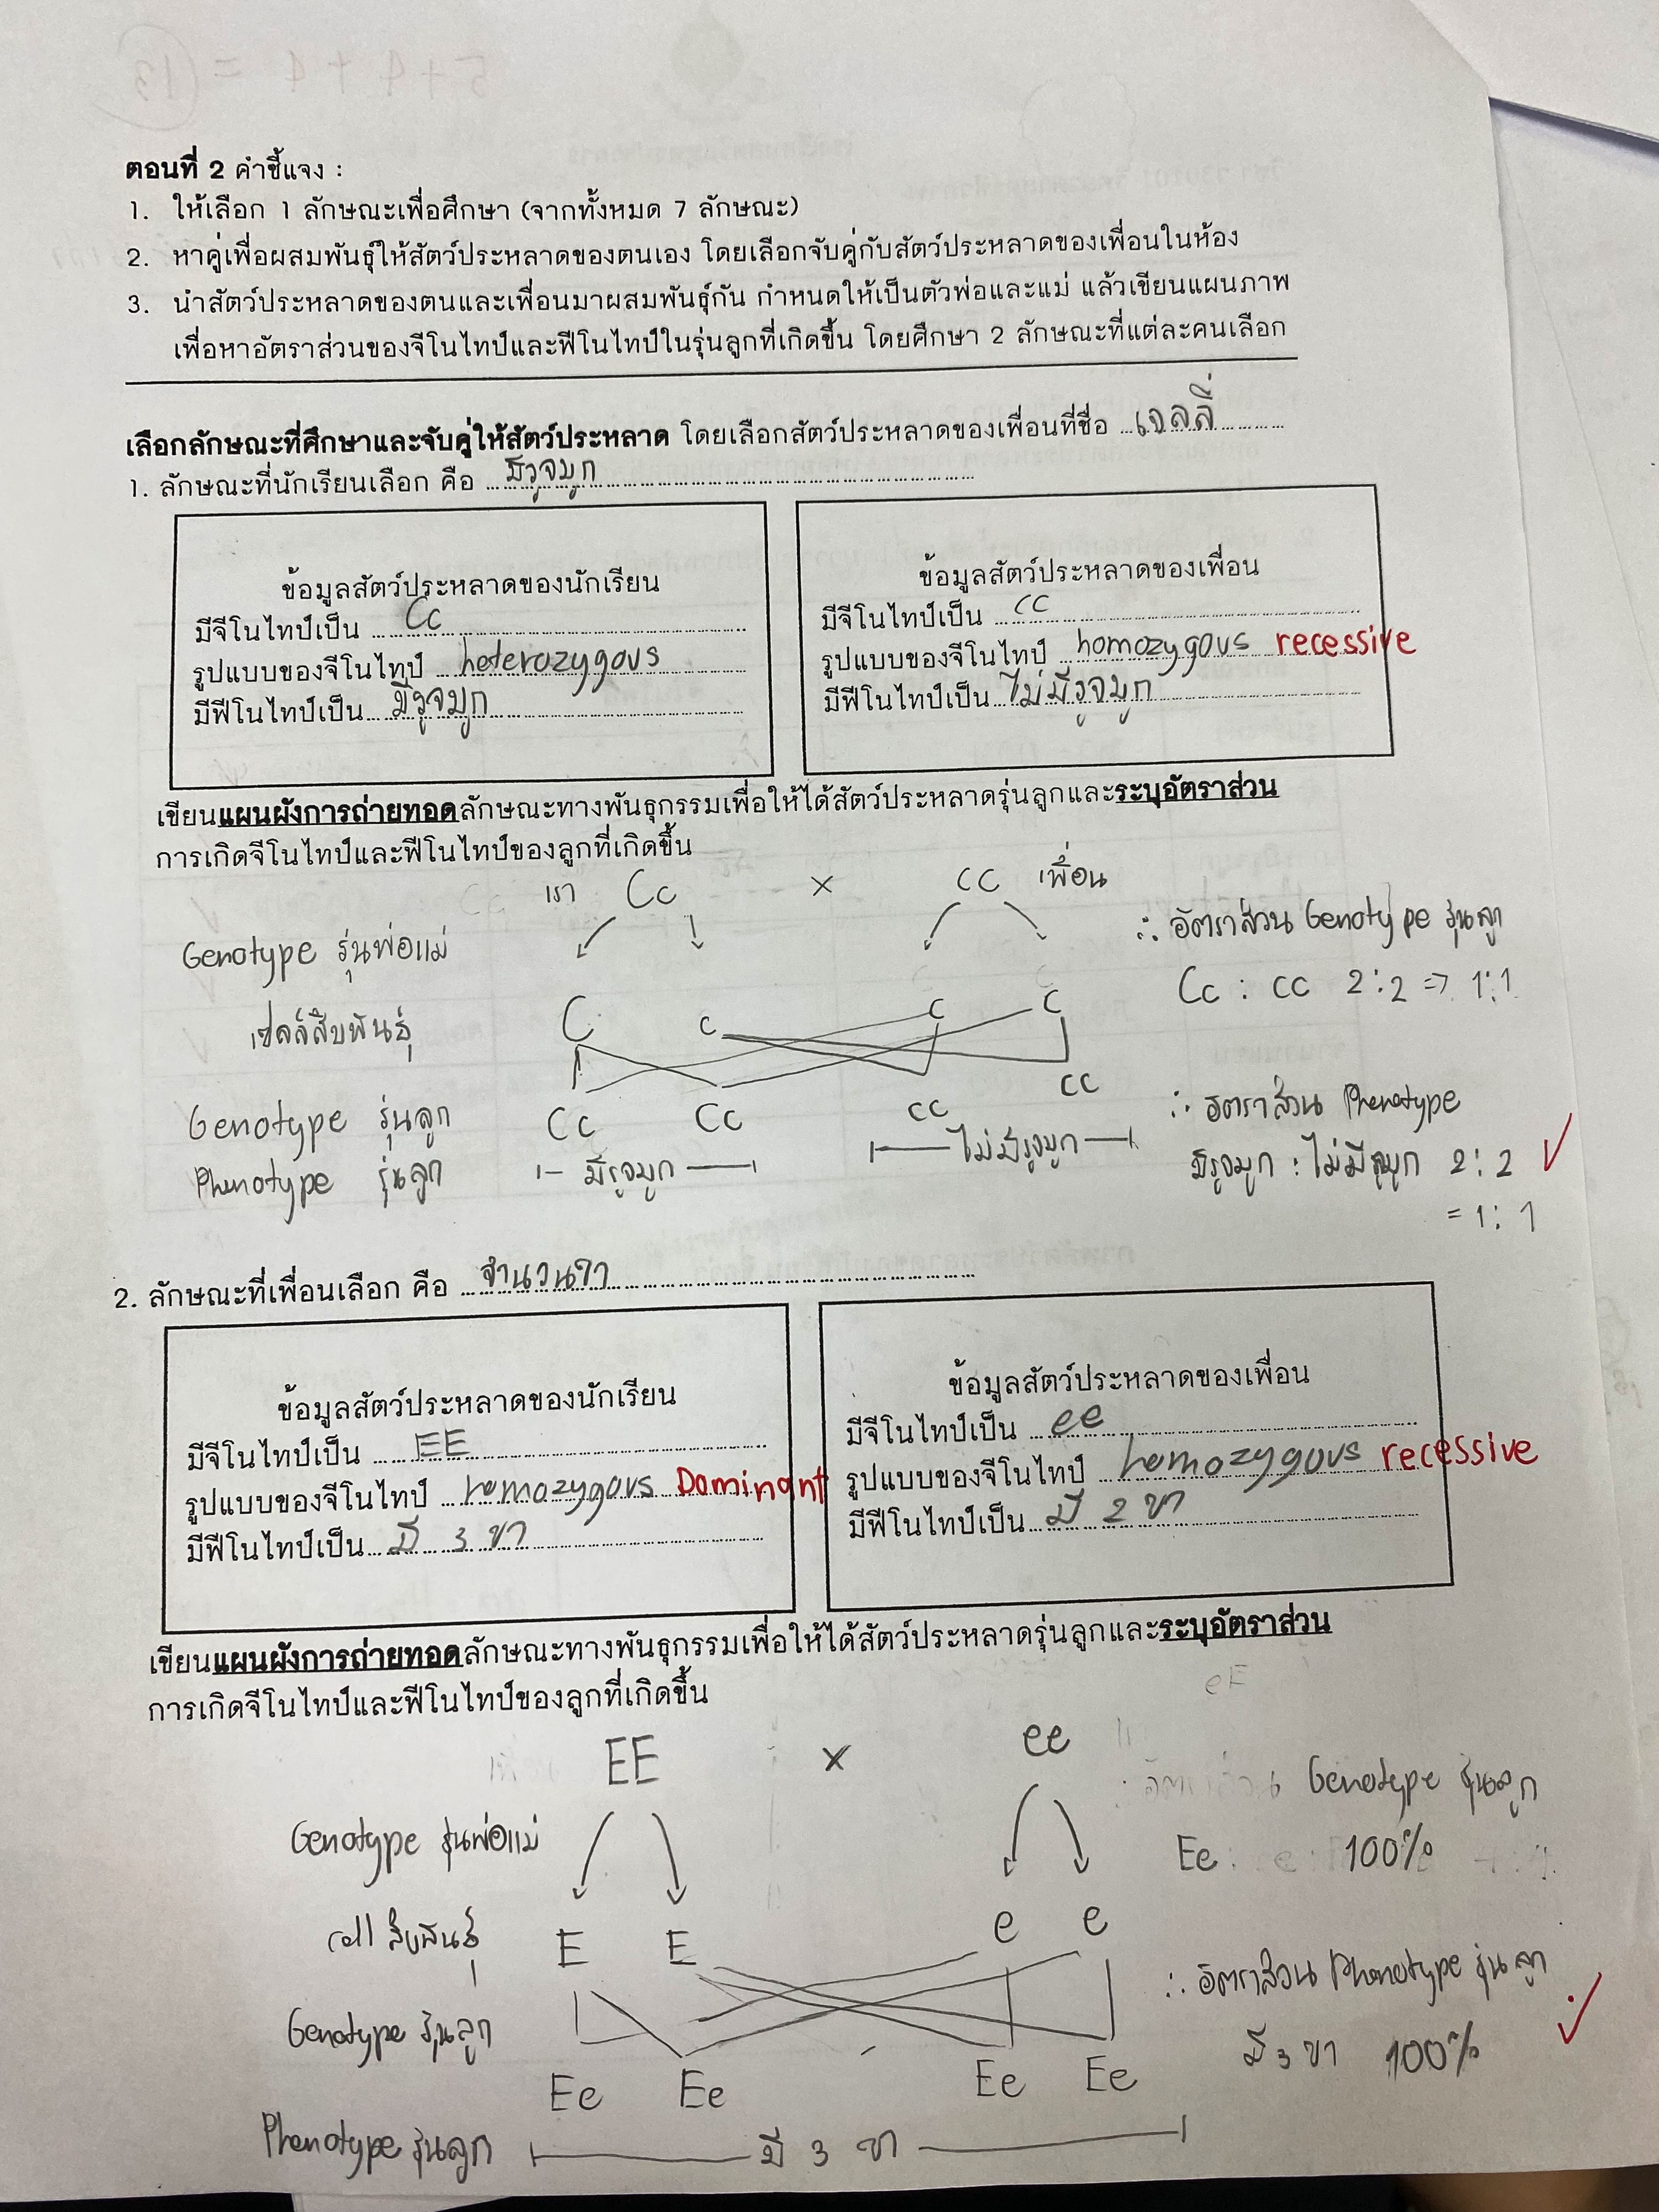 ตอนที่ 2 คำชี้แจง :
1. ให้เลือก 1 ลักษณะเพื่อศึกษา (จากทั้งหมด 7 ลักษณะ)
2. หาคู่เพื่อผสมพันธุ์ให้สัตว์ประหลาดของตนเอง โดยเลือกจับคู่กับสัตว์ประหลาดของเพื่อนในห้อง
3. นำสัตว์ประหลาดของตนและเพื่อนมาผสมพันธุ์กัน กำหนดให้เป็นตัวพ่อและแม่ แล้วเขียนแผนภาพ
เพื่อหาอัตราส่วนของจีโนไทป์และฟีโนไทป์ในรุ่นลูกที่เกิดขึ้น โดยศึกษา 2 ลักษณะที่แต่ละคนเลือก
เลือกลักษณะที่ศึกษาและจับคู่ให้สัตว์ประหลาด โดยเลือกสัตว์ประหลาดของเพื่อนที่ชื่อ เจลลี่
1. ลักษณะที่นักเรียนเลือก คือ มีรูจมูก
ข้อมูลสัตว์ประหลาดของนักเรียน
มีจีโนไทป์เป็น Cc
รูปแบบของจีโนไทป์ heterozygous
มีฟีโนไทป์เป็น มีรูจมูก
ข้อมูลสัตว์ประหลาดของเพื่อน
มีจีโนไทป์เป็น cc
รูปแบบของจีโนไทป์ homozygous recessive
มีฟีโนไทป์เป็น ไม่มีรูจมูก
เขียนแผนผังการถ่ายทอดลักษณะทางพันธุกรรมเพื่อให้ได้สัตว์ประหลาดรุ่นลูกและระบุอัตราส่วน
การเกิดจีโนไทป์และฟีโนไทป์ของลูกที่เกิดขึ้น
เรา Cc × cc เพื่อน
Genotype รุ่นพ่อแม่
เซลล์สืบพันธุ์ C c c c
Genotype รุ่นลูก Cc Cc cc cc
Phenotype รุ่นลูก มีรูจมูก ไม่มีรูจมูก
∴ อัตราส่วน Genotype รุ่นลูก
Cc : cc 2:2 => 1:1
∴ อัตราส่วน Phenotype
มีรูจมูก : ไม่มีรูจมูก 2:2
= 1:1
2. ลักษณะที่เพื่อนเลือก คือ จำนวนขา
ข้อมูลสัตว์ประหลาดของนักเรียน
มีจีโนไทป์เป็น EE
รูปแบบของจีโนไทป์ homozygous Dominant
มีฟีโนไทป์เป็น มี 3 ขา
ข้อมูลสัตว์ประหลาดของเพื่อน
มีจีโนไทป์เป็น ee
รูปแบบของจีโนไทป์ homozygous recessive
มีฟีโนไทป์เป็น มี 2 ขา
เขียนแผนผังการถ่ายทอดลักษณะทางพันธุกรรมเพื่อให้ได้สัตว์ประหลาดรุ่นลูกและระบุอัตราส่วน
การเกิดจีโนไทป์และฟีโนไทป์ของลูกที่เกิดขึ้น
EE × ee
Genotype รุ่นพ่อแม่
cell สืบพันธุ์ E E e e
Genotype รุ่นลูก
Ee Ee Ee Ee
Phenotype รุ่นลูก มี 3 ขา
∴ อัตราส่วน Genotype รุ่นลูก
Ee 100%
∴ อัตราส่วน Phenotype รุ่นลูก
มี 3 ขา 100%